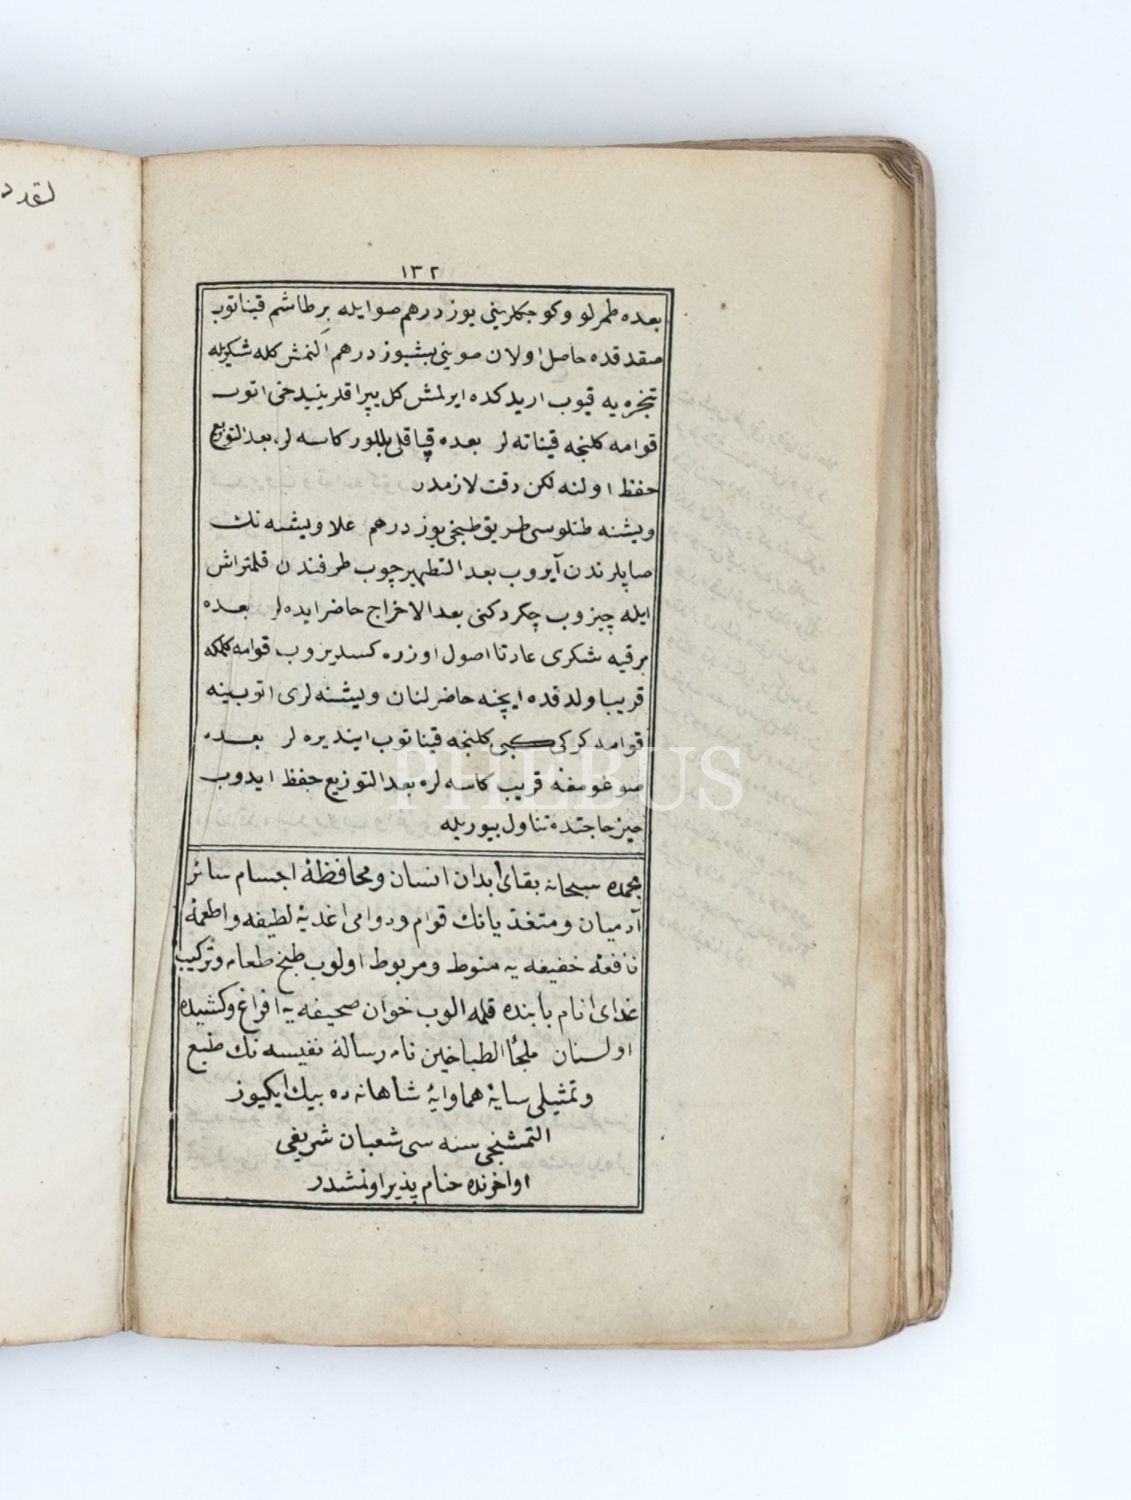 لقد د
١٣٢
بعده طمرلو وكوجكلرينى يوز درهم صو ايله بر طاشم قيناتوب
صقدقده حاصل اولان صوينى بشيوز درهم النمش كله شكريله
تنجره يه قيوب اريدكده ايرلمش كل يپراقلرينيدخى اتوب
قوامه كلنجه قيناته لر بعده قپاقلى بللور كاسه لره بعد التوزيع
حفظ اولنه لكن دقت لازمدر
ويشنه طتلوسى طريق طبخى يوز درهم علا ويشنه نك
صاپلرندن آيروب بعد التطهير چوب طرفندن قلمتراش
ايله چيزوب چكردكنى بعد الاخراج حاضر ايده لر بعده
برقيه شكرى عادتا اصول اوزره كسديروب قوامه كلمكه
قريب اولدقده ايچنه حاضرلنان ويشنه لرى اتوب ينه
قوامه كركى كبى كلنجه قيناتوب اينديره لر بعده
صوغومغه قريب كاسه لره بعد التوزيع حفظ ايدوب
حين حاجتده تناول بيوريله
PHEBUS
بحمده سبحانه بقاى ابدان انسان ومحافظهٔ اجسام سائر
آدميان ومتغذيانك قوام ودوامى اغديهٔ لطيفه واطعمهٔ
نافعهٔ خفيفه يه منوط ومربوط اولوب طبخ طعام وتركيب
غداى انام بابنده قلمه النوب خوان صحيفه يه افراغ وكشيده
اولسنان ملجأ الطباخين نام رسالهٔ نفيسه نك طبع
وتمثيلى سايهٔ هماوايهٔ شاهانه ده بيك ايكيوز
التمشنجى سنه سى شعبان شريفى
اواخرنده ختام پذير اولمشدر